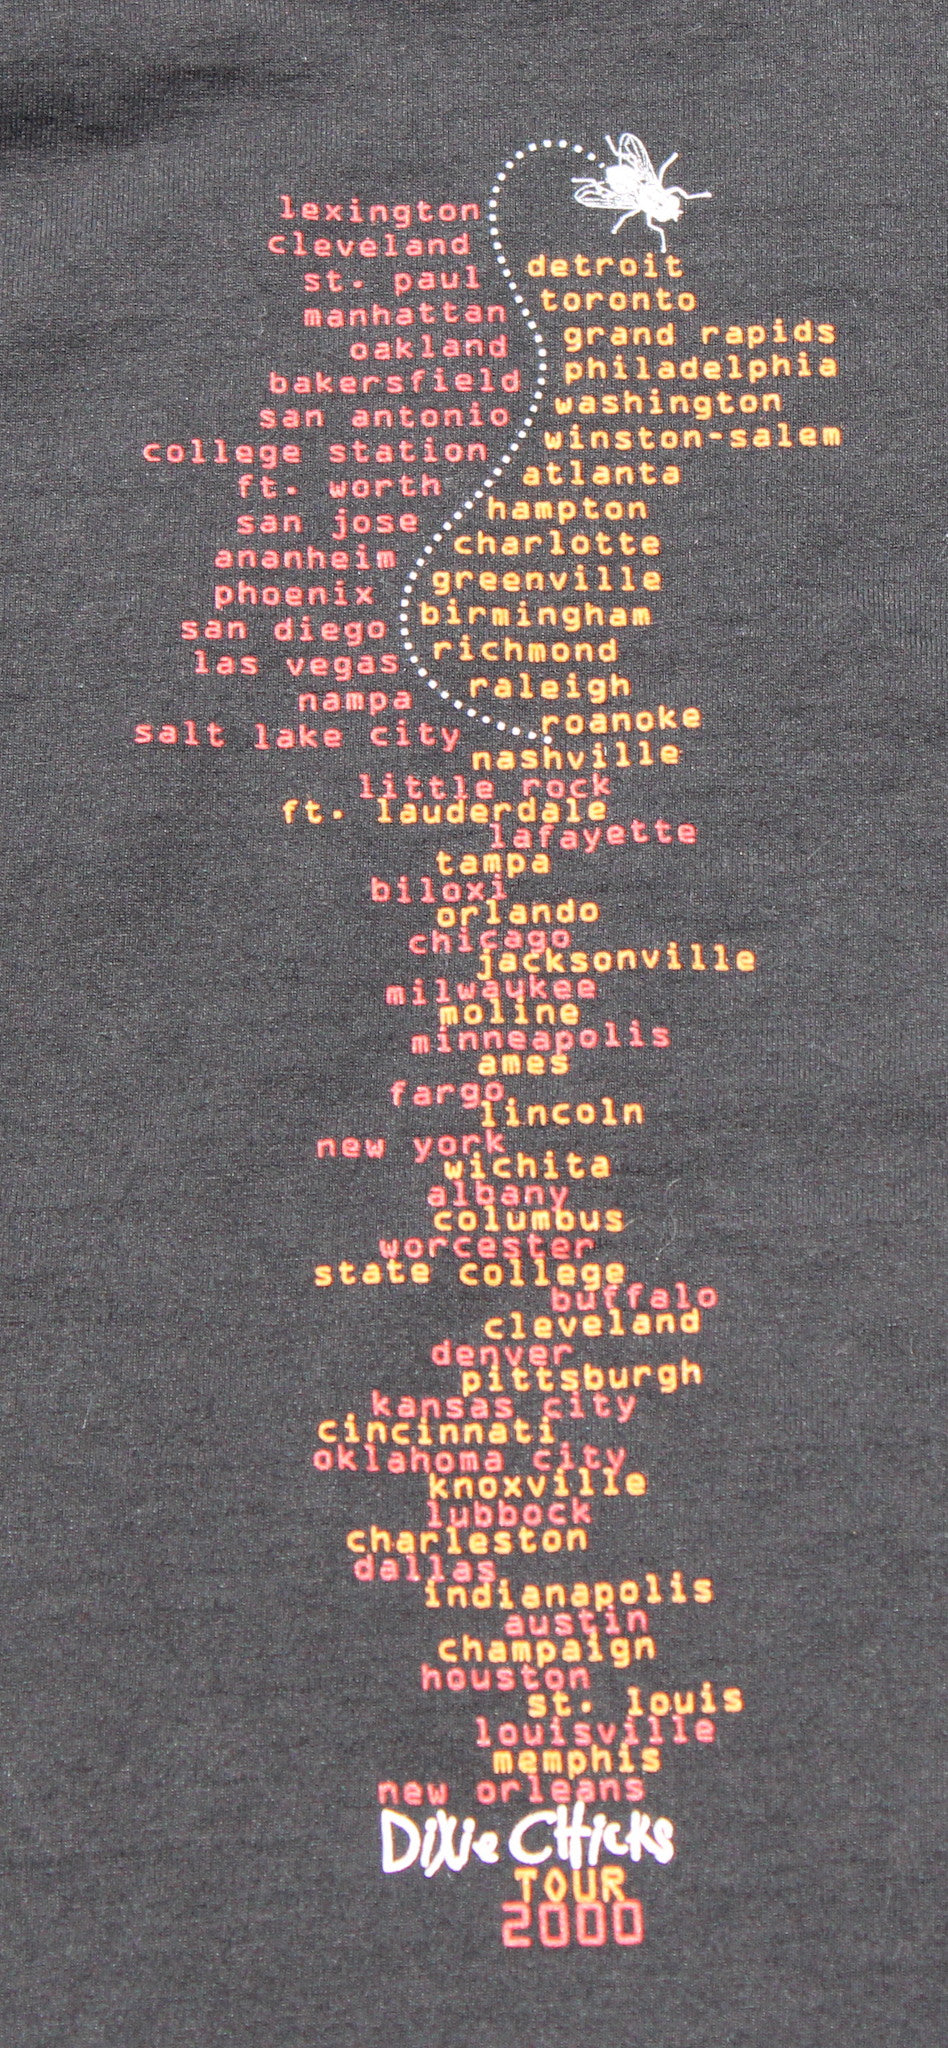 lexington
cleveland
st. paul
detroit
manhattan
toronto
oakland
grand rapids
bakersfield
philadelphia
san antonio
washington
college station
winston-salem
ft. worth
atlanta
san jose
hampton
ananheim
charlotte
phoenix
greenville
san diego
birmingham
las vegas
richmond
nampa
raleigh
salt lake city
roanoke
nashville
little rock
ft. lauderdale
lafayette
tampa
biloxi
orlando
chicago
jacksonville
milwaukee
moline
minneapolis
ames
fargo
lincoln
new york
wichita
albany
columbus
worcester
state college
buffalo
cleveland
denver
pittsburgh
kansas city
cincinnati
oklahoma city
knoxville
lubbock
charleston
dallas
indianapolis
austin
champaign
houston
st. louis
louisville
memphis
new orleans
Dixie CHicks
TOUR
2000